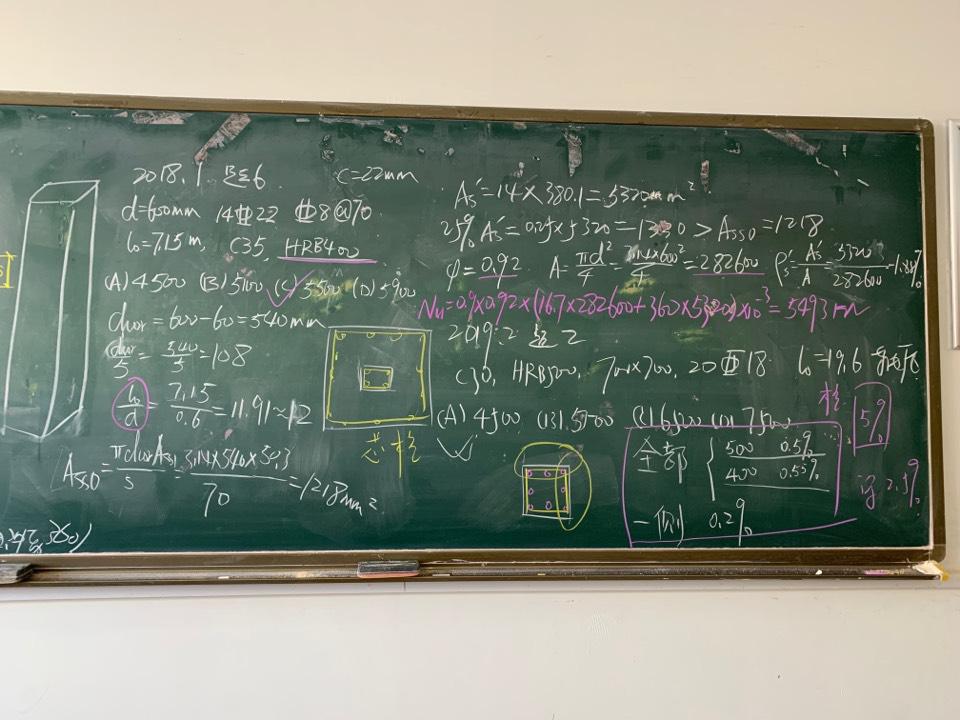 2018.1 题6 C=22mm
d=600mm 14⌀22 ⌀8@70
l₀=7.15m, C35, HRB400
(A) 4500 (B) 5100 (C) 5500 (D) 5900
dcor=600-60=540mm
dcor/5=540/5=108
l₀/d=7.15/0.6=11.91≈12
Ass0=πdcorAss1/s=3.14×540×50.3/70=1218mm²
芯柱
As'=14×380.1=5320mm²
25%As'=0.25×5320=1330>Ass0=1218
φ=0.92 A=πd²/4=3.14×600²/4=282600 ρs'=As'/A=5320/282600=1.88%
Nu=0.9×0.92×(16.7×282600+360×5320)×10⁻³=5493kN
2019.2 题2
C30, HRB500, 700×700, 20⌀18 l₀=19.6
(A) 4500 (B) 5500 (C) 6500 (D) 7500
全部 500 0.5%
400 0.55%
一侧 0.2%
柱 5%